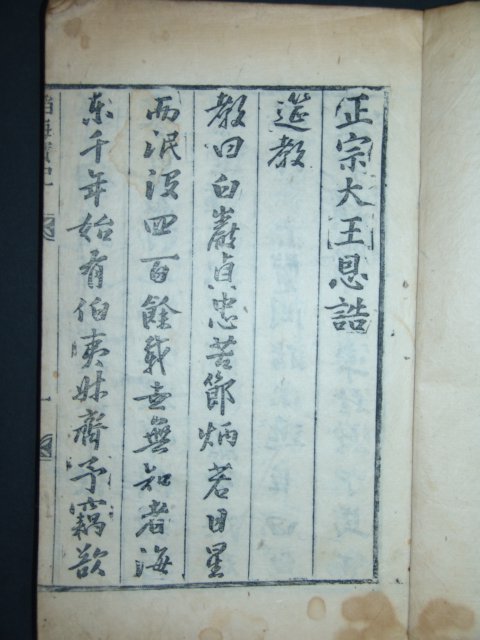 正宗大王恩誥
筵教
教曰白巖貞忠苦節炳若日星
而泯沒四百餘載世無知者海
東千年始有伯夷叔齊予竊欲